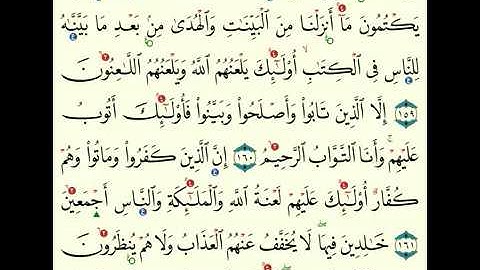 يَكْتُمُونَ مَآ أَنزَلْنَا مِنَ ٱلْبَيِّنَٰتِ وَٱلْهُدَىٰ مِنۢ بَعْدِ مَا بَيَّنَّٰهُ
لِلنَّاسِ فِى ٱلْكِتَٰبِ أُو۟لَٰٓئِكَ يَلْعَنُهُمُ ٱللَّهُ وَيَلْعَنُهُمُ ٱللَّٰعِنُونَ
١٥٩ إِلَّا ٱلَّذِينَ تَابُوا۟ وَأَصْلَحُوا۟ وَبَيَّنُوا۟ فَأُو۟لَٰٓئِكَ أَتُوبُ
عَلَيْهِمْ وَأَنَا ٱلتَّوَّابُ ٱلرَّحِيمُ ١٦٠ إِنَّ ٱلَّذِينَ كَفَرُوا۟ وَمَاتُوا۟ وَهُمْ
كُفَّارٌ أُو۟لَٰٓئِكَ عَلَيْهِمْ لَعْنَةُ ٱللَّهِ وَٱلْمَلَٰٓئِكَةِ وَٱلنَّاسِ أَجْمَعِينَ
١٦١ خَٰلِدِينَ فِيهَا ۖ لَا يُخَفَّفُ عَنْهُمُ ٱلْعَذَابُ وَلَا هُمْ يُنظَرُونَ